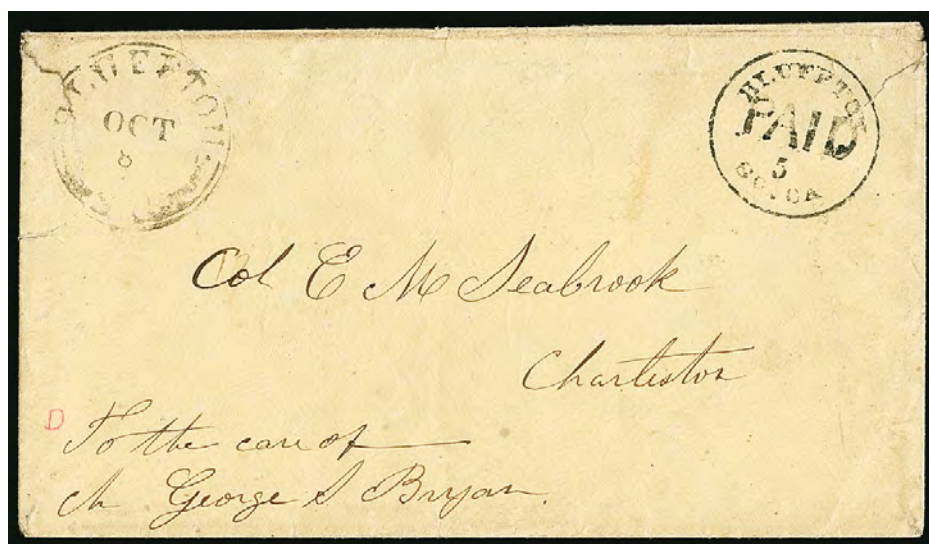 BLUFFTON
OCT
8
BLUFFTON
PAID
5
SO. CA
Col E M Seabrook
Charleston
D
To the care of
George S Bryan.